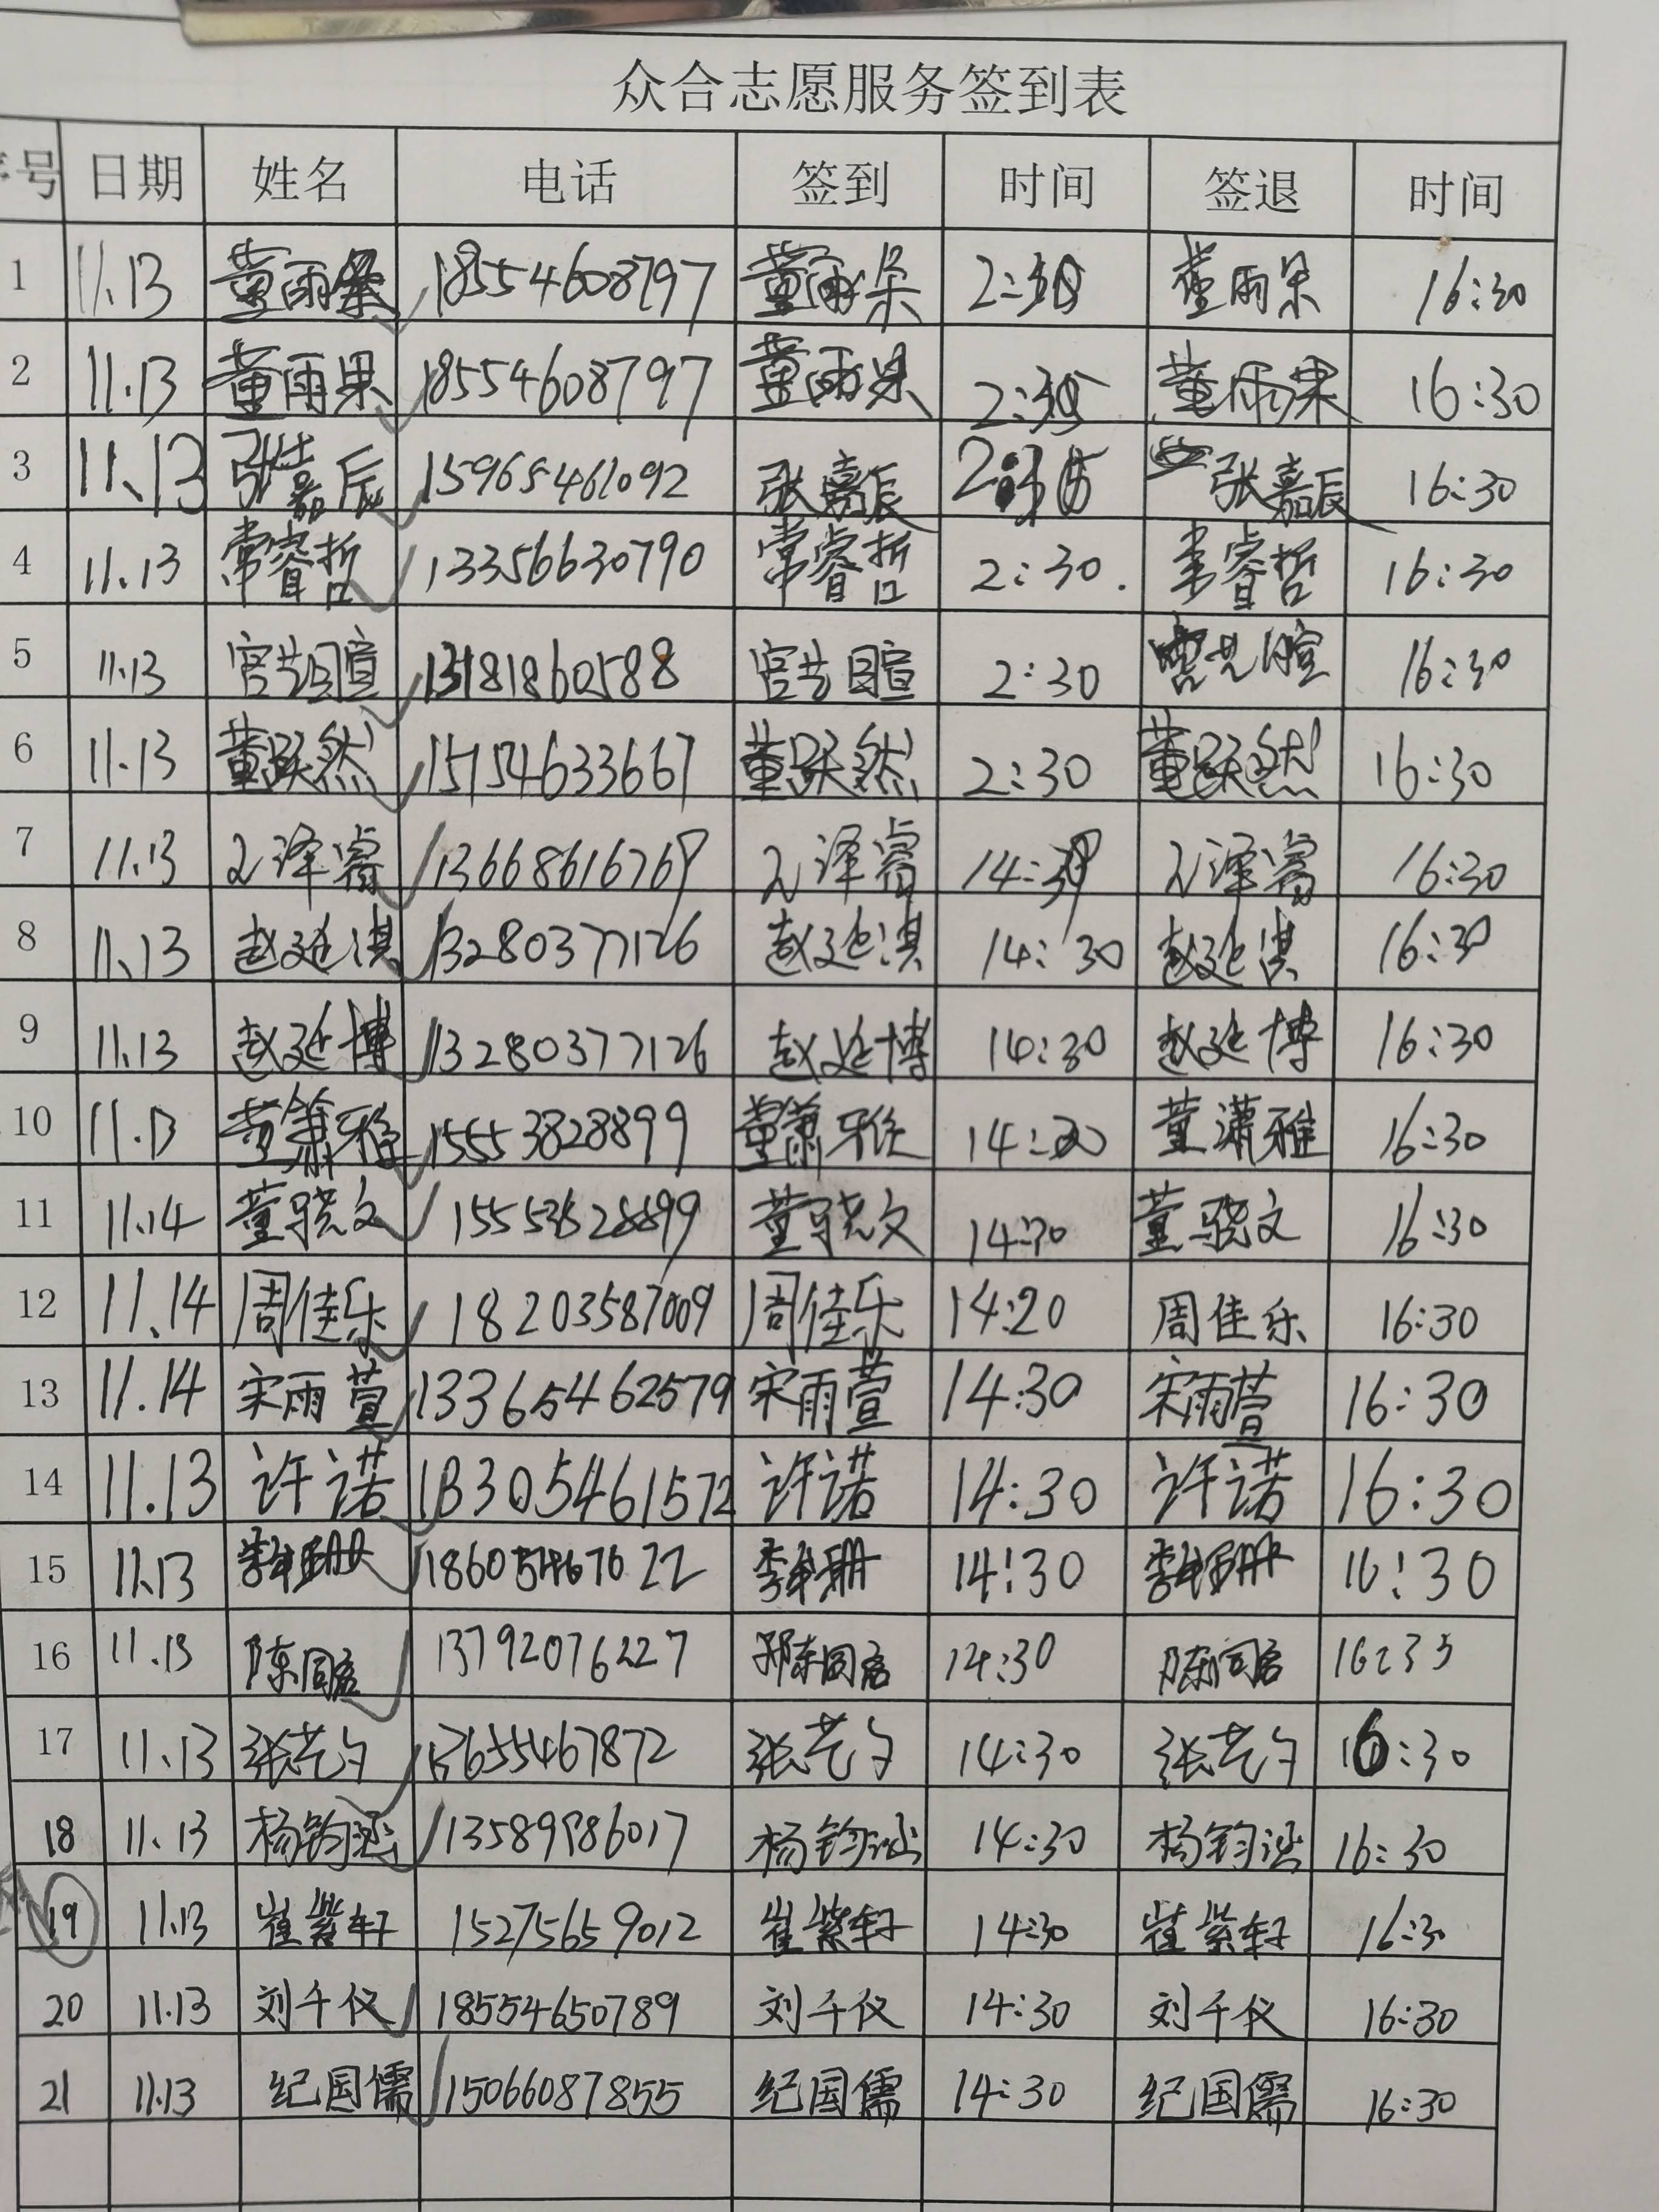 众合志愿服务签到表
号 日期 姓名 电话 签到 时间 签退 时间
1 11.13 董雨朵 18554608797 董雨朵 董雨朵 16:30
2 11.13 董雨果 18554608797 董雨果 董雨果 16:30
3 11.13 张嘉辰 15965461092 张嘉辰 张嘉辰 16:30
4 11.13 常睿哲 13356630790 常睿哲 2:30 常睿哲 16:30
5 11.13 13181860588 2:30 16:30
6 11.13 董跃然 15154633667 董跃然 2:30 董跃然 16:30
7 11.13 泽睿 泽睿 泽睿 16:30
8 11.13 赵延淇 13280377126 赵延淇 14:30 赵延淇 16:30
9 11.13 赵延博 13280377126 赵延博 14:30 赵延博 16:30
10 11.13 董潇雅 15553828899 董潇雅 董潇雅 16:30
11 11.14 董骁文 15553828899 董骁文 14:30 董骁文 16:30
12 11.14 周佳乐 18203587009 周佳乐 14:20 周佳乐 16:30
13 11.14 宋雨萱 13365462579 宋雨萱 14:30 宋雨萱 16:30
14 11.13 许诺 18305461572 许诺 14:30 许诺 16:30
15 11.13 14:30 16:30
16 11.13 13792076227 14:30 16:35
17 11.13 张艺 张艺 14:30 张艺 16:30
18 11.13 杨钧涵 杨钧涵 14:30 杨钧涵 16:30
19 11.13 崔紫轩 15275659012 崔紫轩 14:30 崔紫轩 16:30
20 11.13 刘千仪 18554650789 刘千仪 14:30 刘千仪 16:30
21 11.13 纪国儒 15066087855 纪国儒 14:30 纪国儒 16:30